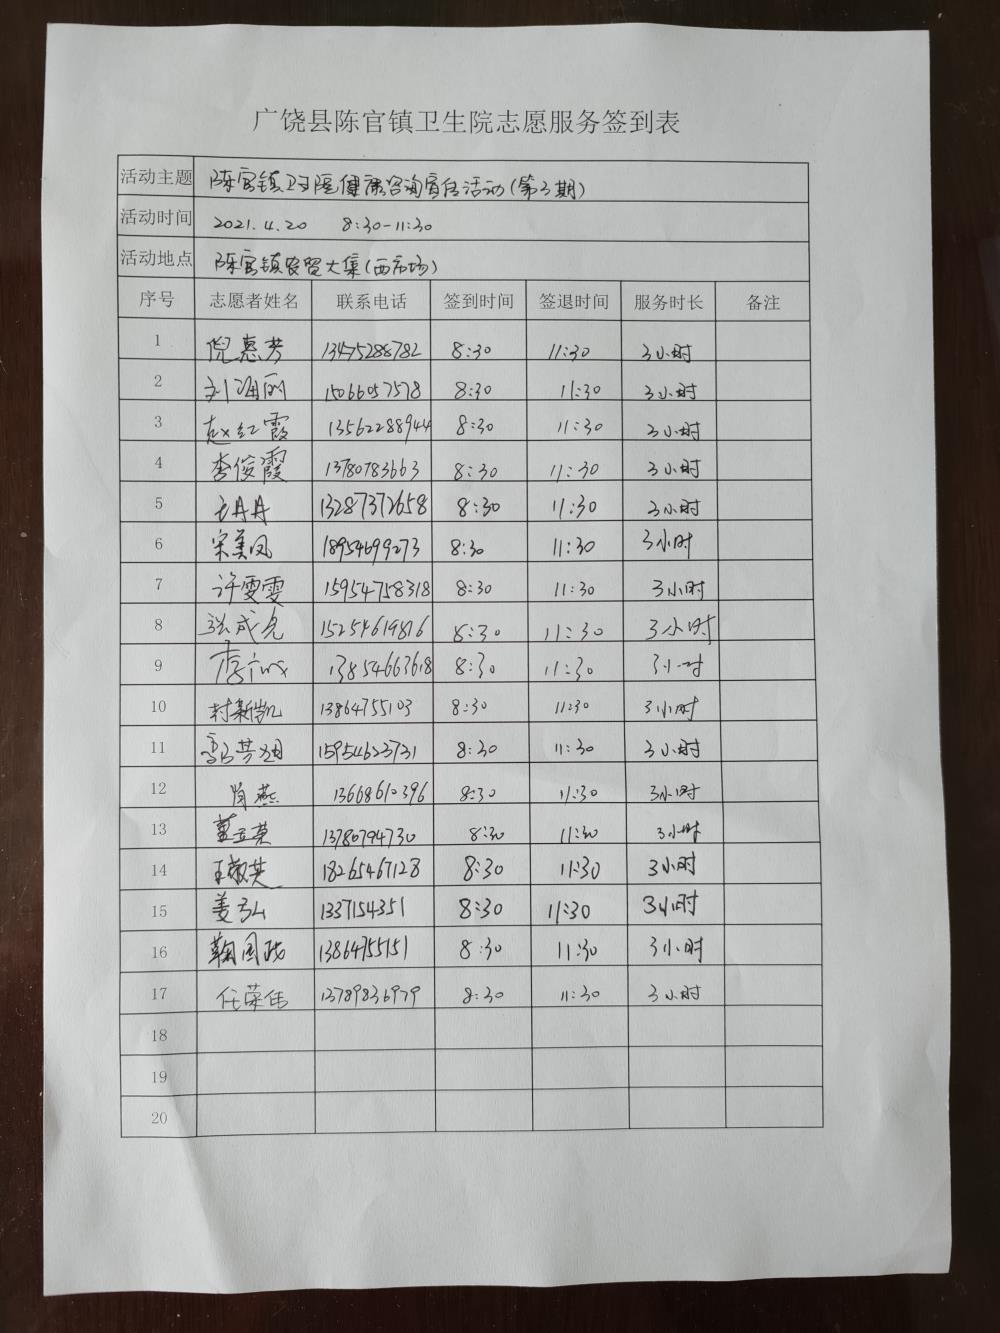 广饶县陈官镇卫生院志愿服务签到表
活动主题 陈官镇卫生院健康咨询宣传活动(第3期)
活动时间 2021.4.20 8:30-11:30
活动地点 陈官镇农贸大集(西市场)
序号 志愿者姓名 联系电话 签到时间 签退时间 服务时长 备注
1 倪惠芳 13475288782 8:30 11:30 3小时
2 刘海丽 15066057578 8:30 11:30 3小时
3 赵红霞 13562288944 8:30 11:30 3小时
4 李俊霞 13780783663 8:30 11:30 3小时
5 丹丹 13287372658 8:30 11:30 3小时
6 宋美凤 18954699273 8:30 11:30 3小时
7 许雯雯 15954758318 8:30 11:30 3小时
8 张成亮 15254619816 8:30 11:30 3小时
9 13854663618 8:30 11:30 3小时
10 村新凯 13864755103 8:30 11:30 3小时
11 15954623731 8:30 11:30 3小时
12 肖燕 13668610396 8:30 11:30 3小时
13 13780794730 8:30 11:30 3小时
14 王敬英 18265467128 8:30 11:30 3小时
15 姜弘 1337154351 8:30 11:30 3小时
16 鞠国防 13864755151 8:30 11:30 3小时
17 任荣伟 13789836979 8:30 11:30 3小时
18
19
20